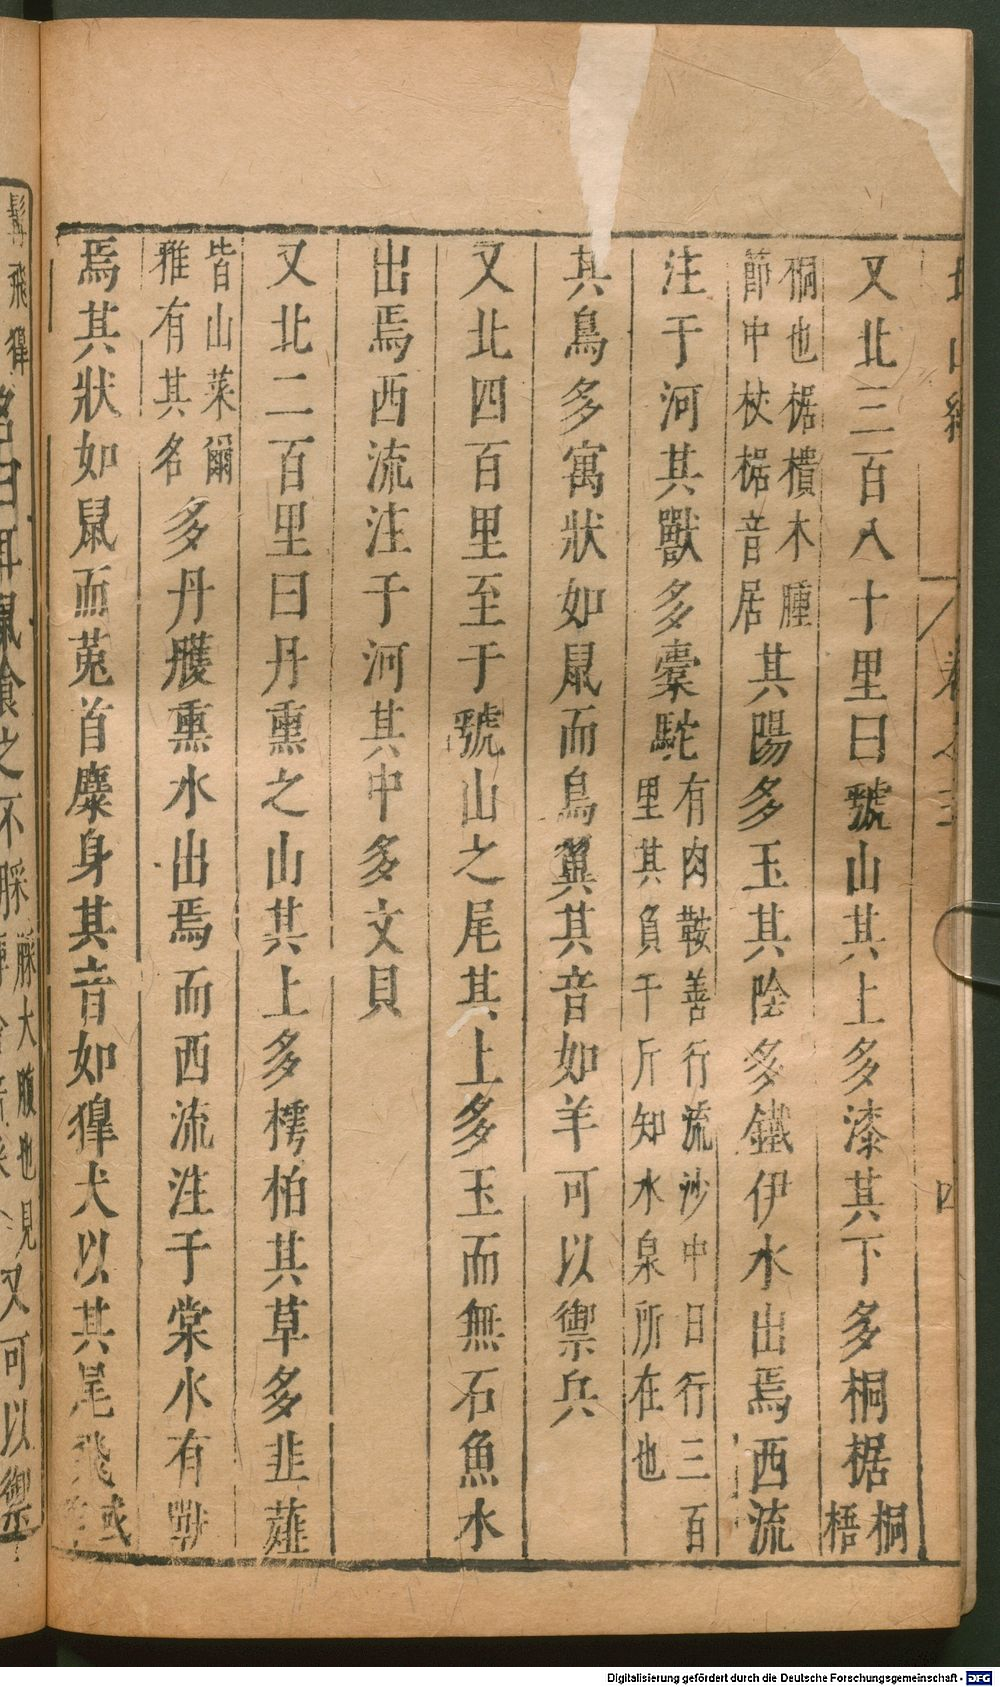 又北三百八十里曰虢山其上多漆其下多桐椐桐梧
桐也椐樻木腫節中杖椐音居其陽多玉其陰多鐵伊水出焉西流
注于河其獸多橐駝有肉鞍善行流沙中日行三百里其負千斤知水泉所在也
其鳥多寓狀如鼠而鳥翼其音如羊可以禦兵
又北四百里至于虢山之尾其上多玉而無石魚水
出焉西流注于河其中多文貝
又北二百里曰丹熏之山其上多樗柏其草多韭䪥
皆山菜爾雅有其名多丹雘熏水出焉而西流注于棠水有獸
焉其狀如鼠而菟首麋身其音如獆犬以其尾飛或
名曰耳鼠食之不䐆䐆大腹也見又可以禦
Digitalisierung gefördert durch die Deutsche Forschungsgemeinschaft - DFG